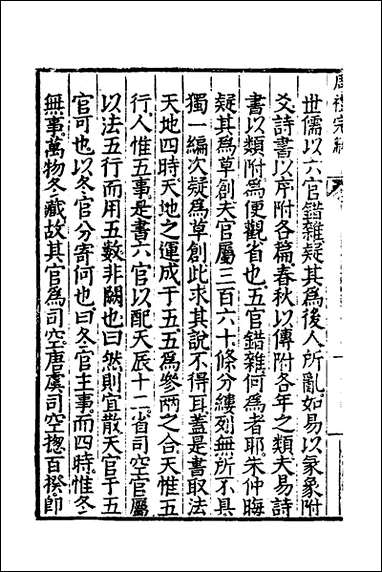 世儒以六官錯雜疑其爲後人所亂如易以彖象附
爻詩書以序附各篇春秋以傳附各年之類夫易詩
書以類附爲便觀省也五官錯雜何爲者耶朱仲晦
疑其爲草創夫官屬三百六十條分縷列無所不具
獨一編次疑爲草創此求其說不得耳蓋是書取法
天地四時天地之運成于五五爲參兩之合天惟五
行人惟五事是書六官以配天辰十二省司空官屬
以法五行而用五數非闕也曰然則宜散天官于五
官可也以冬官分寄何也曰冬官主事而四時惟冬
無事萬物冬藏故其官爲司空唐虞司空揔百揆卽